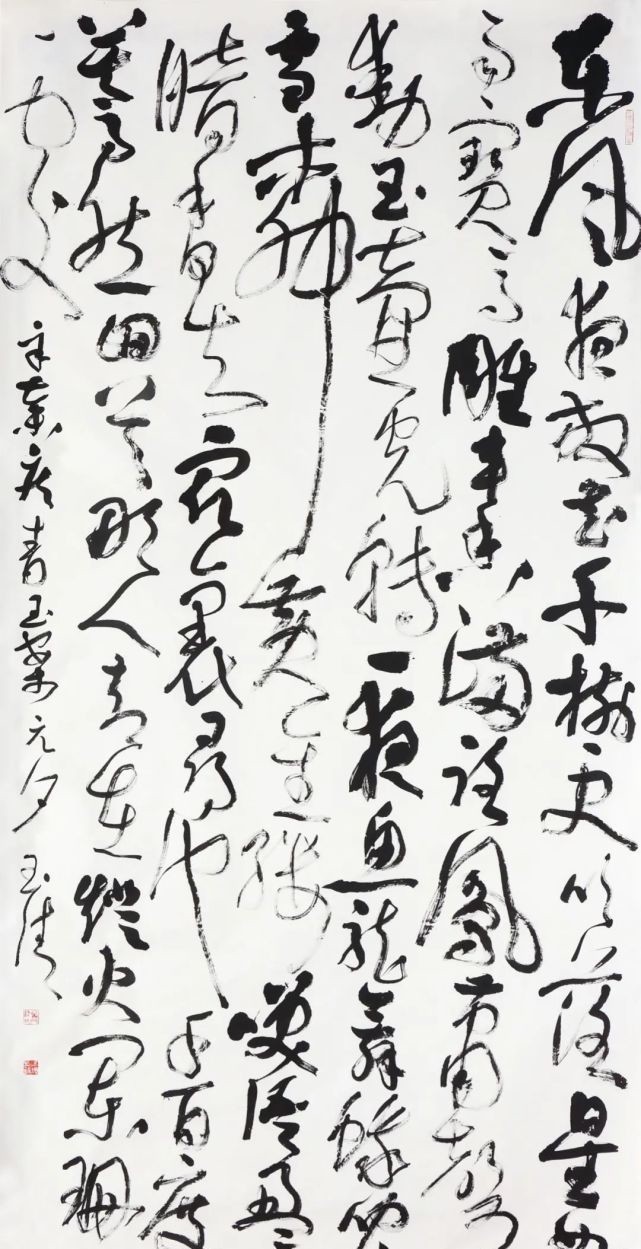 東風夜放花千樹更吹落星如
雨寶馬雕車香滿路鳳簫聲
動玉壺光轉一夜魚龍舞蛾兒
雪柳黃金縷笑語盈盈
暗香去眾裏尋他千百度
驀然回首那人卻在燈火闌珊
處
辛棄疾青玉案元夕 玉